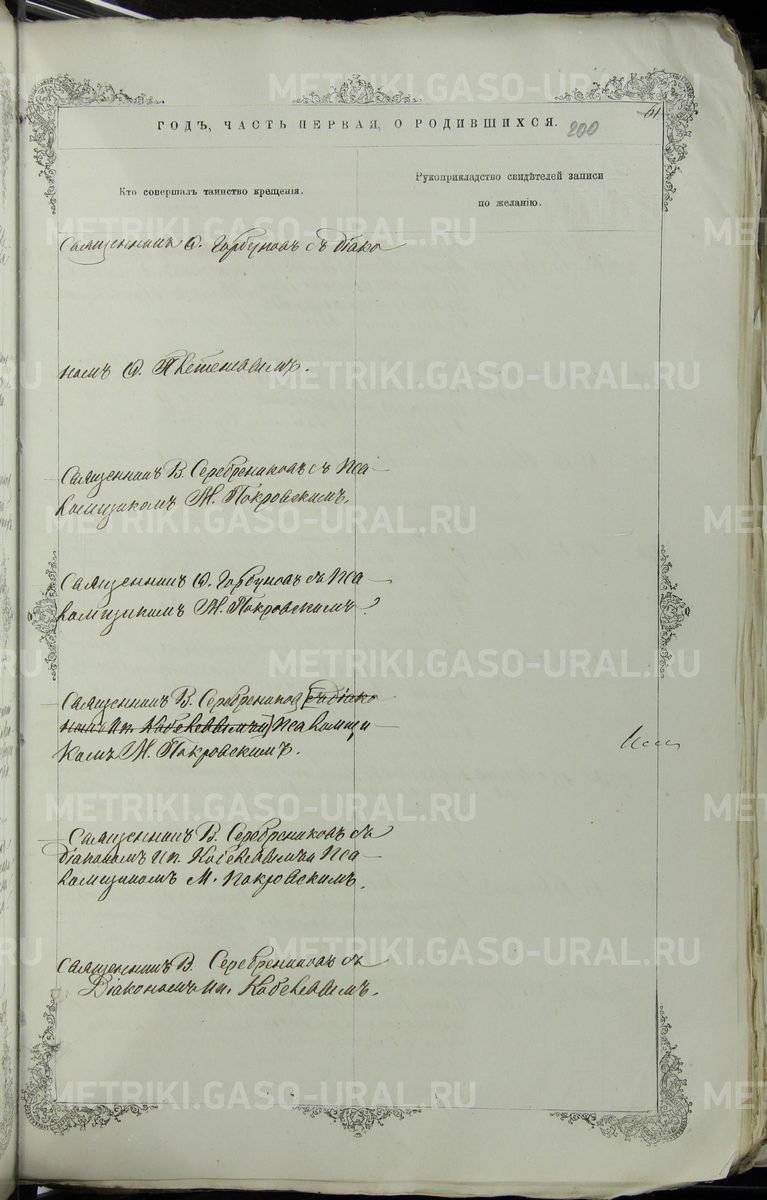 ГОДЪ, ЧАСТЬ ПЕРВАЯ, О РОДИВШИХСЯ.
200
61
Кто совершалъ таинство крещенія.
Рукоприкладство свидѣтелей записи
по желанію.
Священникъ Ѳ. Горбуновъ съ діако
номъ Ѳ.
Священникъ В. Серебрениковъ съ Пса
ломщикомъ М. Покровскимъ.
Священникъ Ѳ. Горбуновъ съ Пса
ломщикомъ М. Покровскимъ.
Священникъ В. Серебрениковъ съ діако
номъ Ип. Псаломщи
комъ М. Покровскимъ.
Священникъ В. Серебрениковъ съ
діакономъ Ип. и Пса
ломщикомъ М. Покровскимъ.
Священникъ В. Серебрениковъ съ
Діакономъ Ип.
METRIKI.GASO-URAL.RU